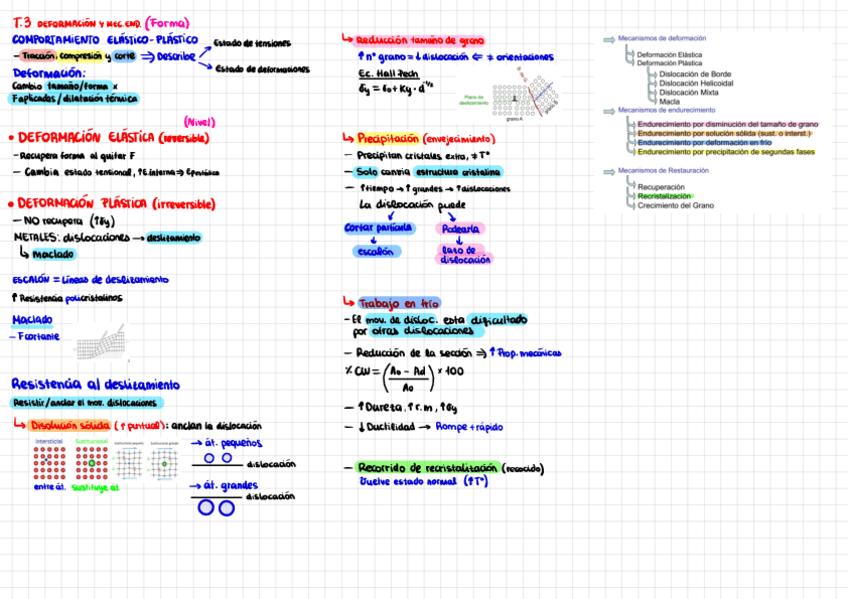 T.3 DEFORMACIÓN Y MEC. END. (Forma)
COMPORTAMIENTO ELÁSTICO-PLÁSTICO
- Tracción, compresión y corte ⇒ Describe
Estado de tensiones
Estado de deformaciones
Deformación:
Cambio tamaño/forma x
F aplicadas/dilatación térmica
(Nivel)
• DEFORMACIÓN ELÁSTICA (reversible)
- Recupera forma al quitar F
- Cambia estado tensional, ↑E.interna ⇒
• DEFORMACIÓN PLÁSTICA (irreversible)
- NO recupera (↑δy)
METALES: dislocaciones → deslizamiento
↳ maclado
ESCALÓN = Líneas de deslizamiento
↑ Resistencia policristalinos
Maclado
- F cortante
Resistencia al deslizamiento
Resistir/anclar el mov. dislocaciones
↳ Disolución sólida (↑ puntual): anclan la dislocación
Intersticial
Sustitucional
entre át.
sustituye át.
→ át. pequeños
dislocación
→ át. grandes
dislocación
↳ Reducción tamaño de grano
↑ nº grano = ↓ dislocación ⇐ ≠ orientaciones
Ec. Hall Pech
δy = δ0 + Ky · d^-1/2
Plano de
deslizamiento
grano A
grano B
↳ Precipitación (envejecimiento)
- Precipitan cristales extra, ≠ Tª
- Solo cambia estructura cristalina
- ↑ tiempo → ↑ grandes → ↑ dislocaciones
La dislocación puede
Cortar partícula
Rodearla
escalón
lazo de
dislocación
↳ Trabajo en frío
- El mov. de disloc. esta dificultado
por otras dislocaciones
- Reducción de la sección ⇒ ↑ Prop. mecánicas
% CW = (A0 - Ad / A0) x 100
- ↑ Dureza, ↑ r.m, ↑ δy
- ↓ Ductilidad → Rompe + rápido
- Recorrido de recristalización (recocido)
Vuelve estado normal (↑Tª)
Mecanismos de deformación
Deformación Elástica
Deformación Plástica
Dislocación de Borde
Dislocación Helicoidal
Dislocación Mixta
Macla
Mecanismos de endurecimiento
Endurecimiento por disminución del tamaño de grano
Endurecimiento por solución sólida (sust. o interst.)
Endurecimiento por deformación en frío
Endurecimiento por precipitación de segundas fases
Mecanismos de Restauración
Recuperación
Recristalización
Crecimiento del Grano